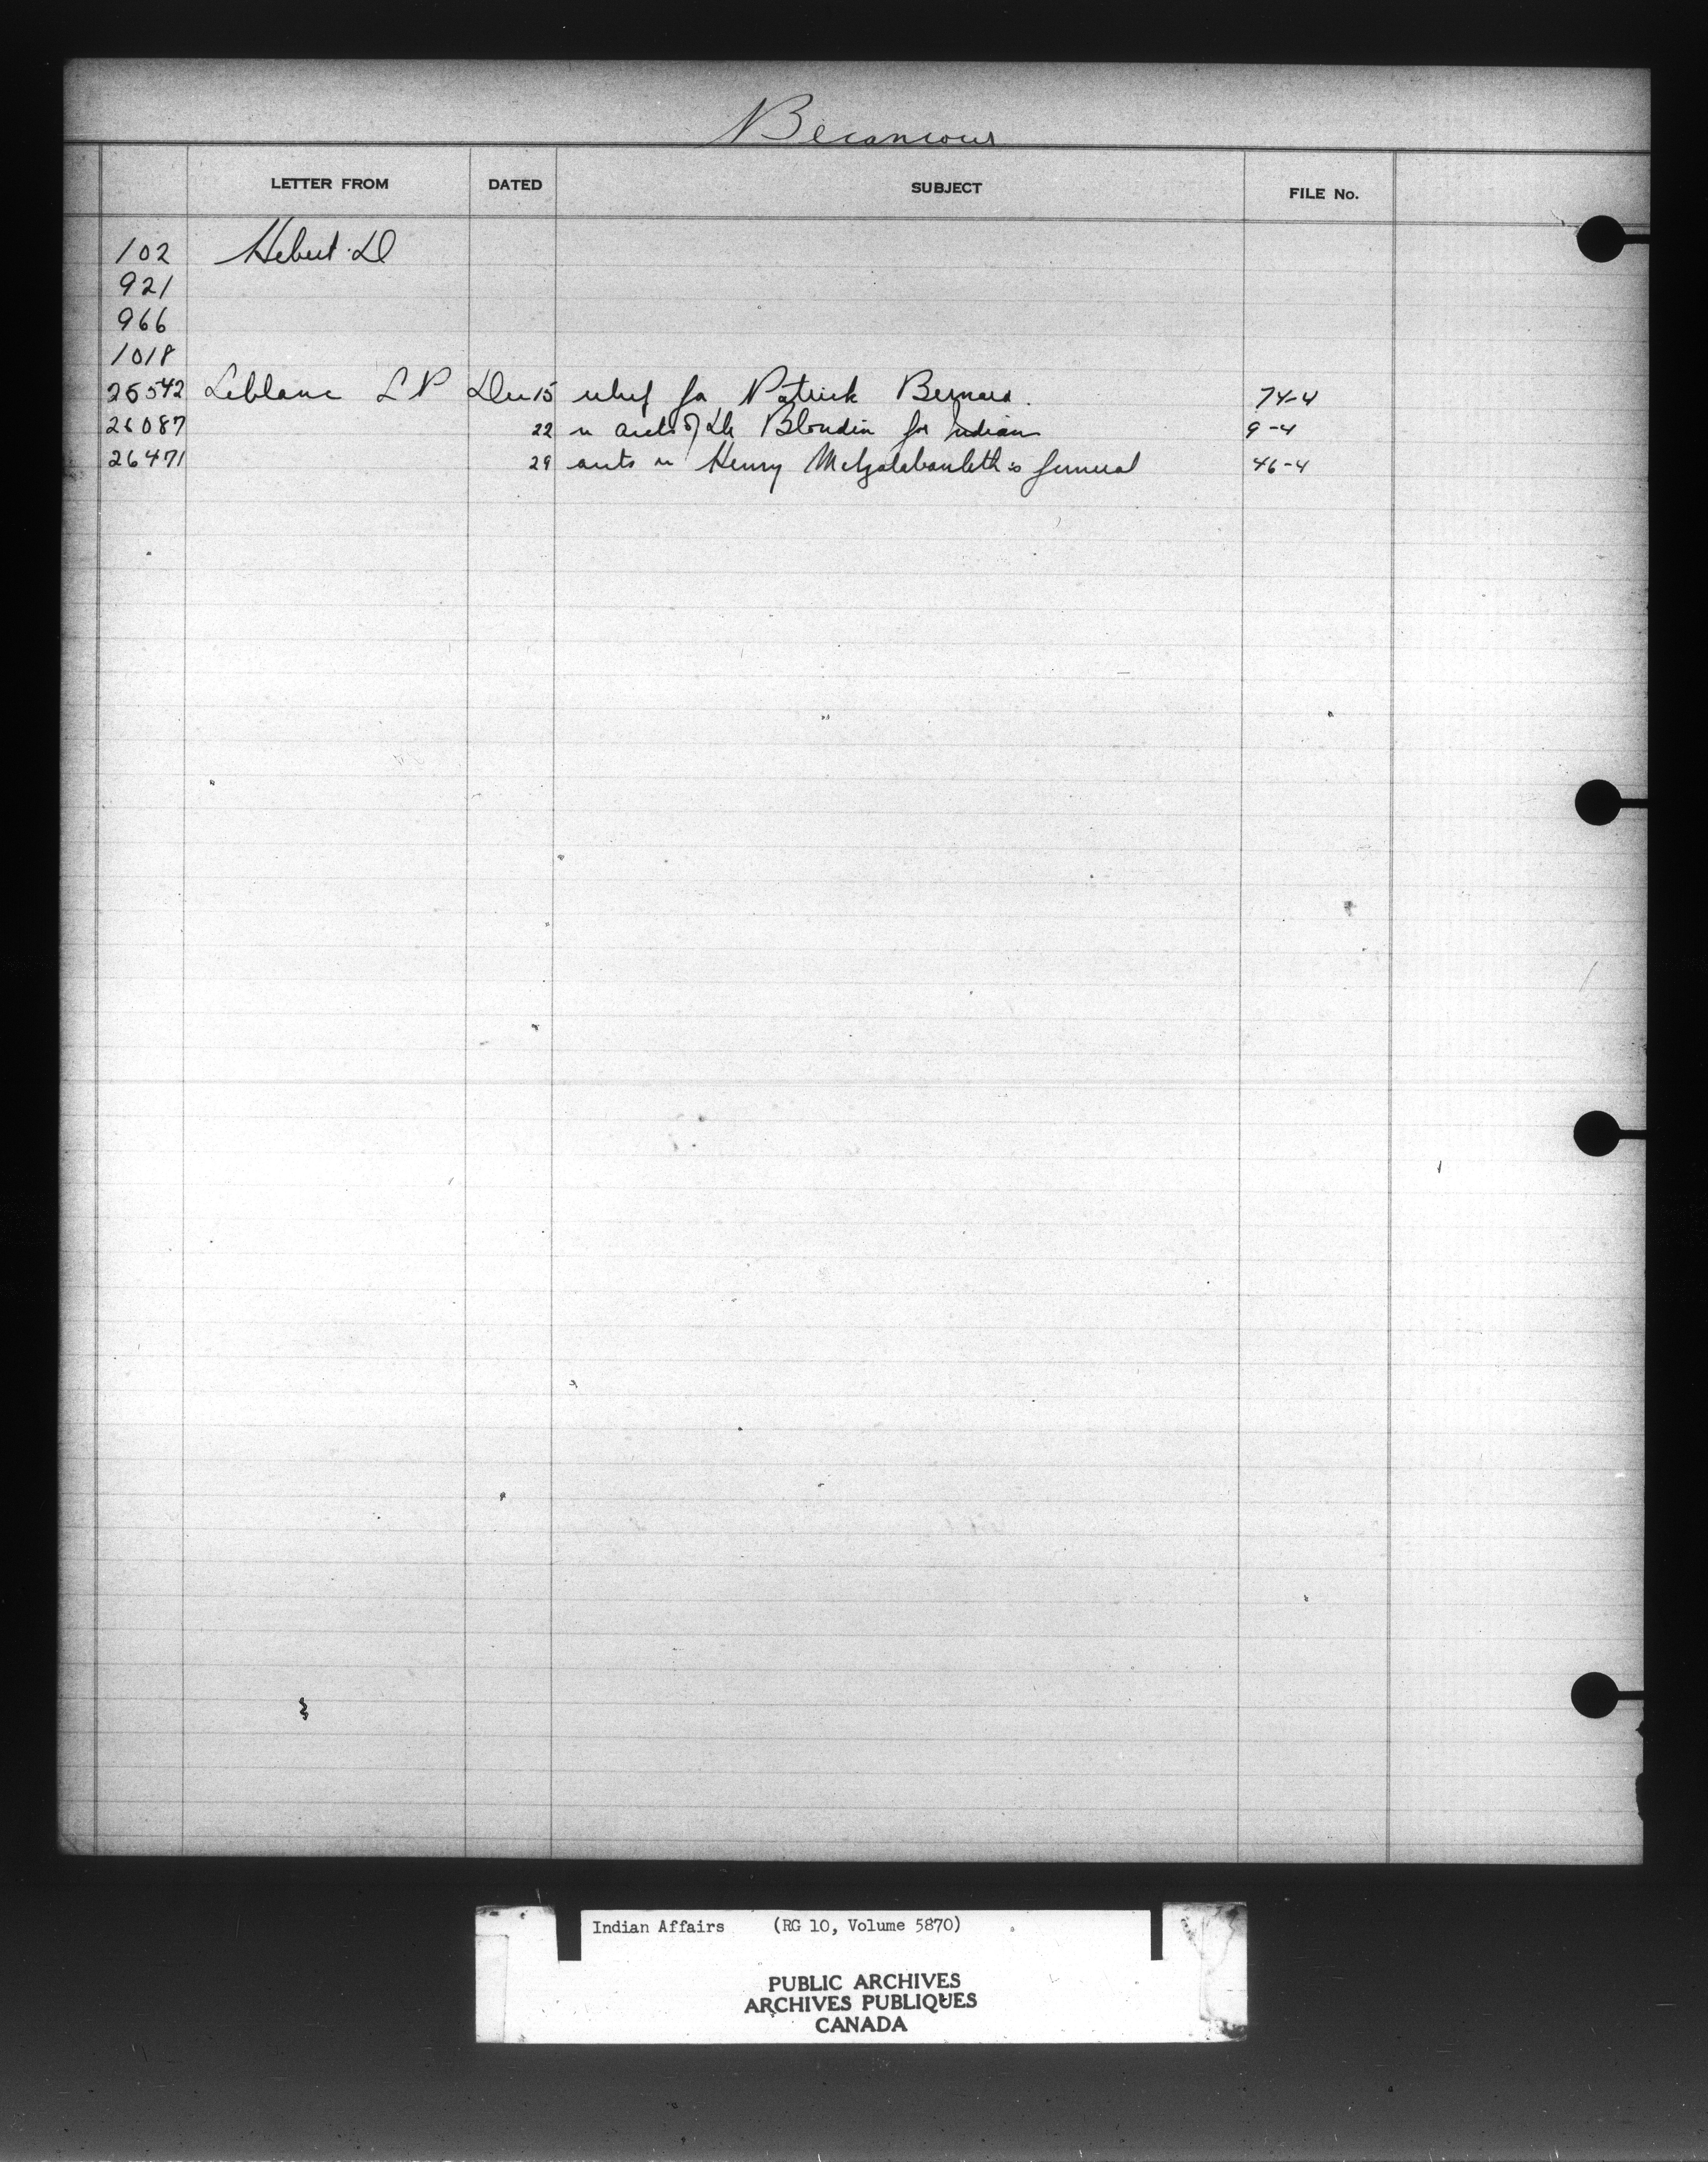 Becancour
LETTER FROM DATED SUBJECT FILE No.
102 Hebert D
921
966
1018
25542 Leblanc L P Dec 15 relief for Patrick Bernard. 74-4
26087 22 re accts of Dr Blondin for Indians 9-4
26471 29 accts re Henry funeral 46-4
Indian Affairs (RG 10, Volume 5870)
PUBLIC ARCHIVES
ARCHIVES PUBLIQUES
CANADA